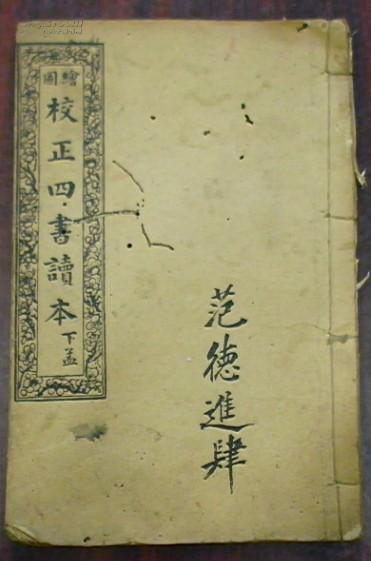 繪圖
校正四書讀本
下孟
范德進肆